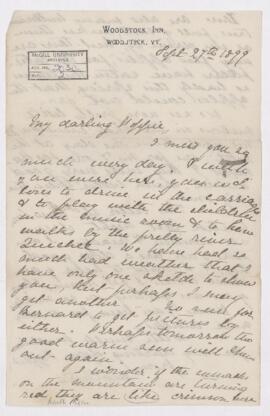 WOODSTOCK INN,
WOODSTOCK, VT.
Sept 27th 1899
McGILL UNIVERSITY
ARCHIVES
ACC. NO.
REF.
My darling
I miss you so
much every day. I wish
you were here, you would
love to drive in the carriage
& to play with the children
in the music room & to have
walks by the pretty river
We have had so
much bad weather that I
have only one sketch to show
you, but perhaps I may
get another. No sun for
Bernard to get pictures by
either. Perhaps tomorrow the
good warm sun will shine
out again.
I wonder if the sumachs
on the mountain are turning
red, they are like crimson here